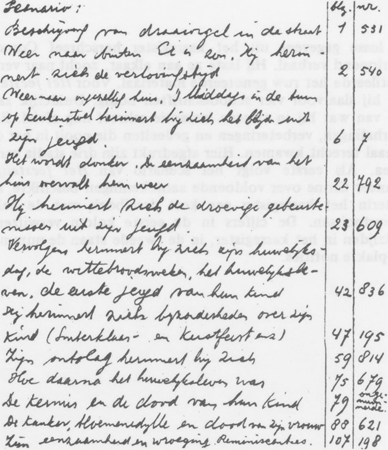 Scenario: blz. nr.
Beschrijving van draaiorgel in de straat 1 531
Weer naar binnen. Et is een. Hij herin-
nert zich de verlovingstijd 2 540
Weer naar ongezellig huis, 's Middags, in de tuin
op keukenstoel herinnert hij zich het blijde uit
zijn jeugd 6 ?
Het wordt donker. De eenzaamheid van het
huis overvalt hem weer 22 792
Hij herinnert zich de droevige gebeurte-
nissen uit zijn jeugd 23 609
Vervolgens herinnert hij zich zijn huwelijks-
dag, de wittebroodsweken, het huwelijksle-
ven, de eerste jeugd van hun kind 42 836
Hij herinnert zich bijzonderheden over zijn
kind (Sinterklaas- en Kerstfeest) 47 195
Zijn ontslag herinnert hij zich 59 814
Hoe daarna het huwelijksleven was 75 679
De kermis en de dood van hun kind 79 ongenummerde
De kanker, bloemenidylle en dood van zijn vrouw 88 621
Zijn eenzaamheid en wroeging. Reminiscenties. 107 198